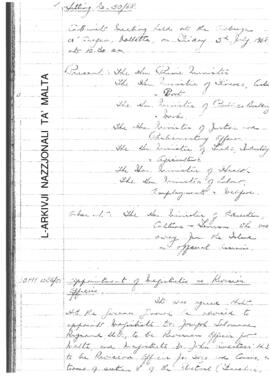 Sitting No. 30/68
Cabinet Meeting held at the Auberge
d'Aragon, Valletta, on Friday 5th July 1968
at 10.30 am
Present: The Hon Prime Minister
The Hon Minister of Finance, Customs
& Port
The Hon Minister of Public Building
& Works
The Hon Minister of Justice and
Parliamentary Affairs
The Hon Minister of Trade, Industry
& Agriculture
The Hon Minister of Health
The Hon Minister of Labour
Employment & Welfare
Absent: The Hon Minister of Education,
Culture & Tourism, who was
away from the Island
on
L-ARKIVJI NAZZJONALI TA' MALTA
OPM
Appointment of Magistrates as Revision
Officers
It was agreed that
H.E. the Governor General be advised to
appoint Magistrate Dr. Joseph
to be Revision Officer for
Malta and Magistrate Dr. John
to be Revision Officer for Gozo and Comino, in
terms of section of the Electoral